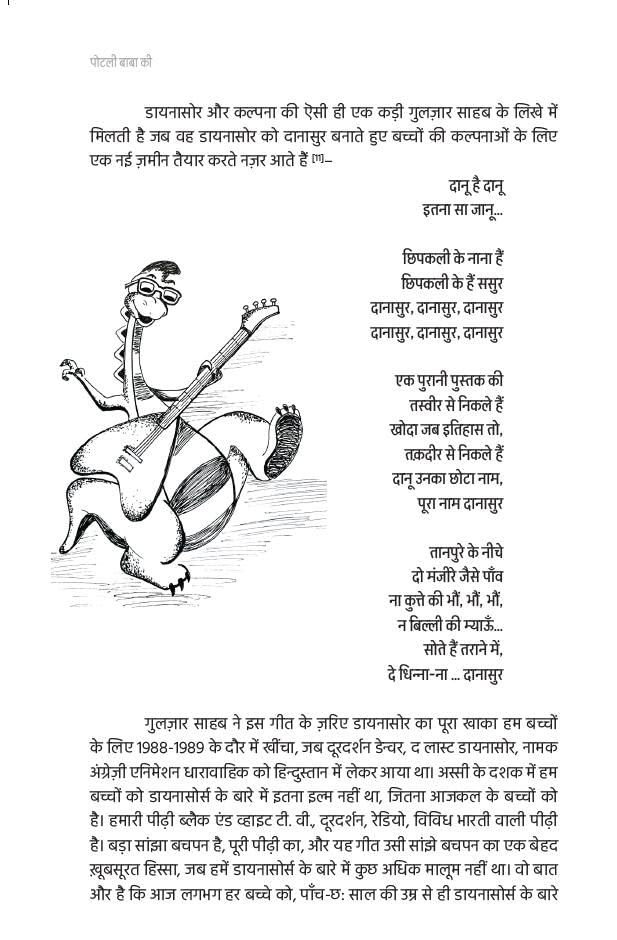 पोटली बाबा की
डायनासोर और कल्पना की ऐसी ही एक कड़ी गुलज़ार साहब के लिखे में
मिलती है जब वह डायनासोर को दानासुर बनाते हुए बच्चों की कल्पनाओं के लिए
एक नई ज़मीन तैयार करते नज़र आते हैं [11]–
दानू है दानू
इतना सा जानू...
छिपकली के नाना हैं
छिपकली के हैं ससुर
दानासुर, दानासुर, दानासुर
दानासुर, दानासुर, दानासुर
एक पुरानी पुस्तक की
तस्वीर से निकले हैं
खोदा जब इतिहास तो,
तक़दीर से निकले हैं
दानू उनका छोटा नाम,
पूरा नाम दानासुर
तानपुरे के नीचे
दो मंजीरे जैसे पाँव
ना कुत्ते की भौं, भौं, भौं,
न बिल्ली की म्याऊँ...
सोते हैं तराने में,
दे धिन्ना-ना ... दानासुर
गुलज़ार साहब ने इस गीत के ज़रिए डायनासोर का पूरा खाका हम बच्चों
के लिए 1988-1989 के दौर में खींचा, जब दूरदर्शन डेन्वर, द लास्ट डायनासोर, नामक
अंग्रेज़ी एनिमेशन धारावाहिक को हिन्दुस्तान में लेकर आया था। अस्सी के दशक में हम
बच्चों को डायनासोर्स के बारे में इतना इल्म नहीं था, जितना आजकल के बच्चों को
है। हमारी पीढ़ी ब्लैक एंड व्हाइट टी. वी., दूरदर्शन, रेडियो, विविध भारती वाली पीढ़ी
है। बड़ा सांझा बचपन है, पूरी पीढ़ी का, और यह गीत उसी सांझे बचपन का एक बेहद
ख़ूबसूरत हिस्सा, जब हमें डायनासोर्स के बारे में कुछ अधिक मालूम नहीं था। वो बात
और है कि आज लगभग हर बच्चे को, पाँच-छ: साल की उम्र से ही डायनासोर्स के बारे